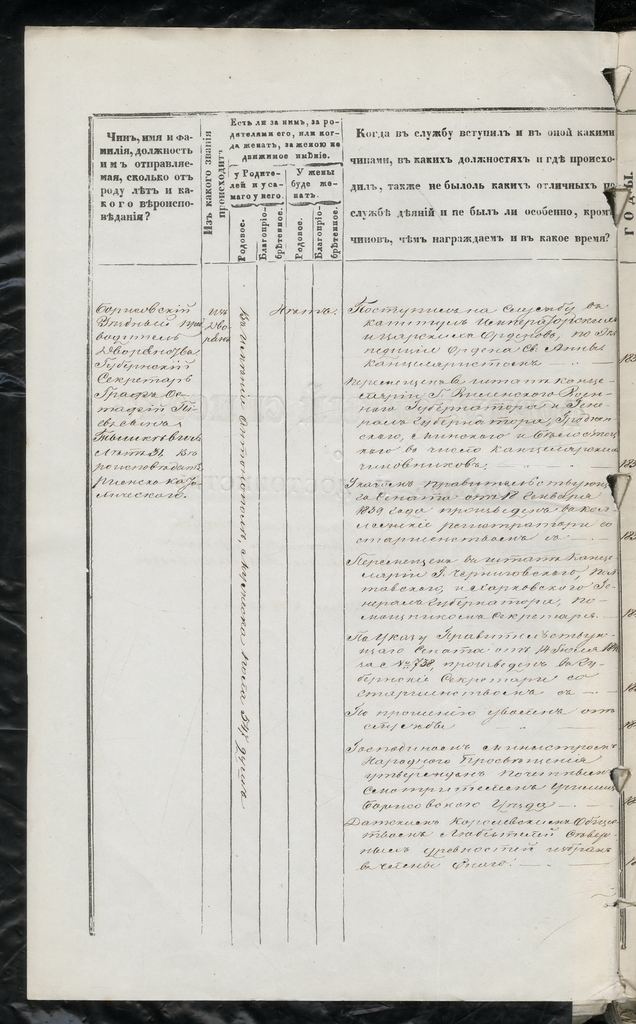 Чинъ, имя и фа-
милія, должность
имъ отправляе-
мая, сколько отъ
роду лѣтъ и ка-
кого вѣроиспо-
вѣданія?
Изъ какого званія
происходитъ
Есть ли за нимъ, за ро-
дителями его, или ког-
да женатъ, за женою не
движимое имѣніе.
у Родите-
лей и у са-
маго у него.
У жены
буде же-
натъ.
Родовое.
Благопріо-
брѣтенное.
Родовое.
Благопріо-
брѣтенное.
Когда въ службу вступилъ и въ оной какими
чинами, въ какихъ должностяхъ и гдѣ происхо-
дилъ, также не было ль какихъ отличныхъ по
службѣ дѣяній и не былъ ли особенно, кромѣ
чиновъ, чѣмъ награждаемъ и въ какое время?
ГОДЫ.
Борисовскій
Уѣздный Пред
водитель
Дворянства
Губернскій
Секретарь
Графъ Ев-
стафій Пі-
евъ сынъ
Тышкевичъ
лѣтъ 31 Вѣ-
роисповѣданія
Римско Като-
лическаго.
изъ
Дво-
рянъ
въ имѣніи Антополь, Минска 541 душа
Нѣтъ.
Поступилъ на службу въ
капитулъ Императорскихъ
и царскихъ Орденовъ, по Экс
педиціи Ордена Св. Анны
канцеляристомъ
Перемѣщенъ въ штатъ Канце-
ляріи Г. Виленскаго Воен-
наго Губернатора и Гене-
ралъ Губернатора, Гроднен-
скаго, Минскаго и Бѣлосток-
скаго въ число канцелярскихъ
чиновниковъ:
Указомъ Правительствующа-
го Сената отъ 18 Генваря
1839 года произведенъ въ кол-
лежскіе регистраторы со
старшинствомъ съ
Перемѣщенъ въ штатъ Канце-
ляріи Г. Черниговскаго, Пол-
тавскаго, и Харьковскаго Ге-
нералъ Губернатора, по-
мощникомъ Секретаря.
По Указу Правительствую-
щаго Сената отъ 14 Іюля
за № 738, произведенъ въ Гу-
бернскіе Секретари со
старшинствомъ съ
По прошенію уволенъ отъ
службы
Господиномъ Министромъ
Народнаго Просвѣщенія
утвержденъ Почетнымъ
Смотрителемъ Училищъ
Борисовскаго Уѣзда
Датскимъ Королевскимъ Обще-
ствомъ Любителей Сѣвер-
ныхъ древностей избранъ
въ члены Онаго: